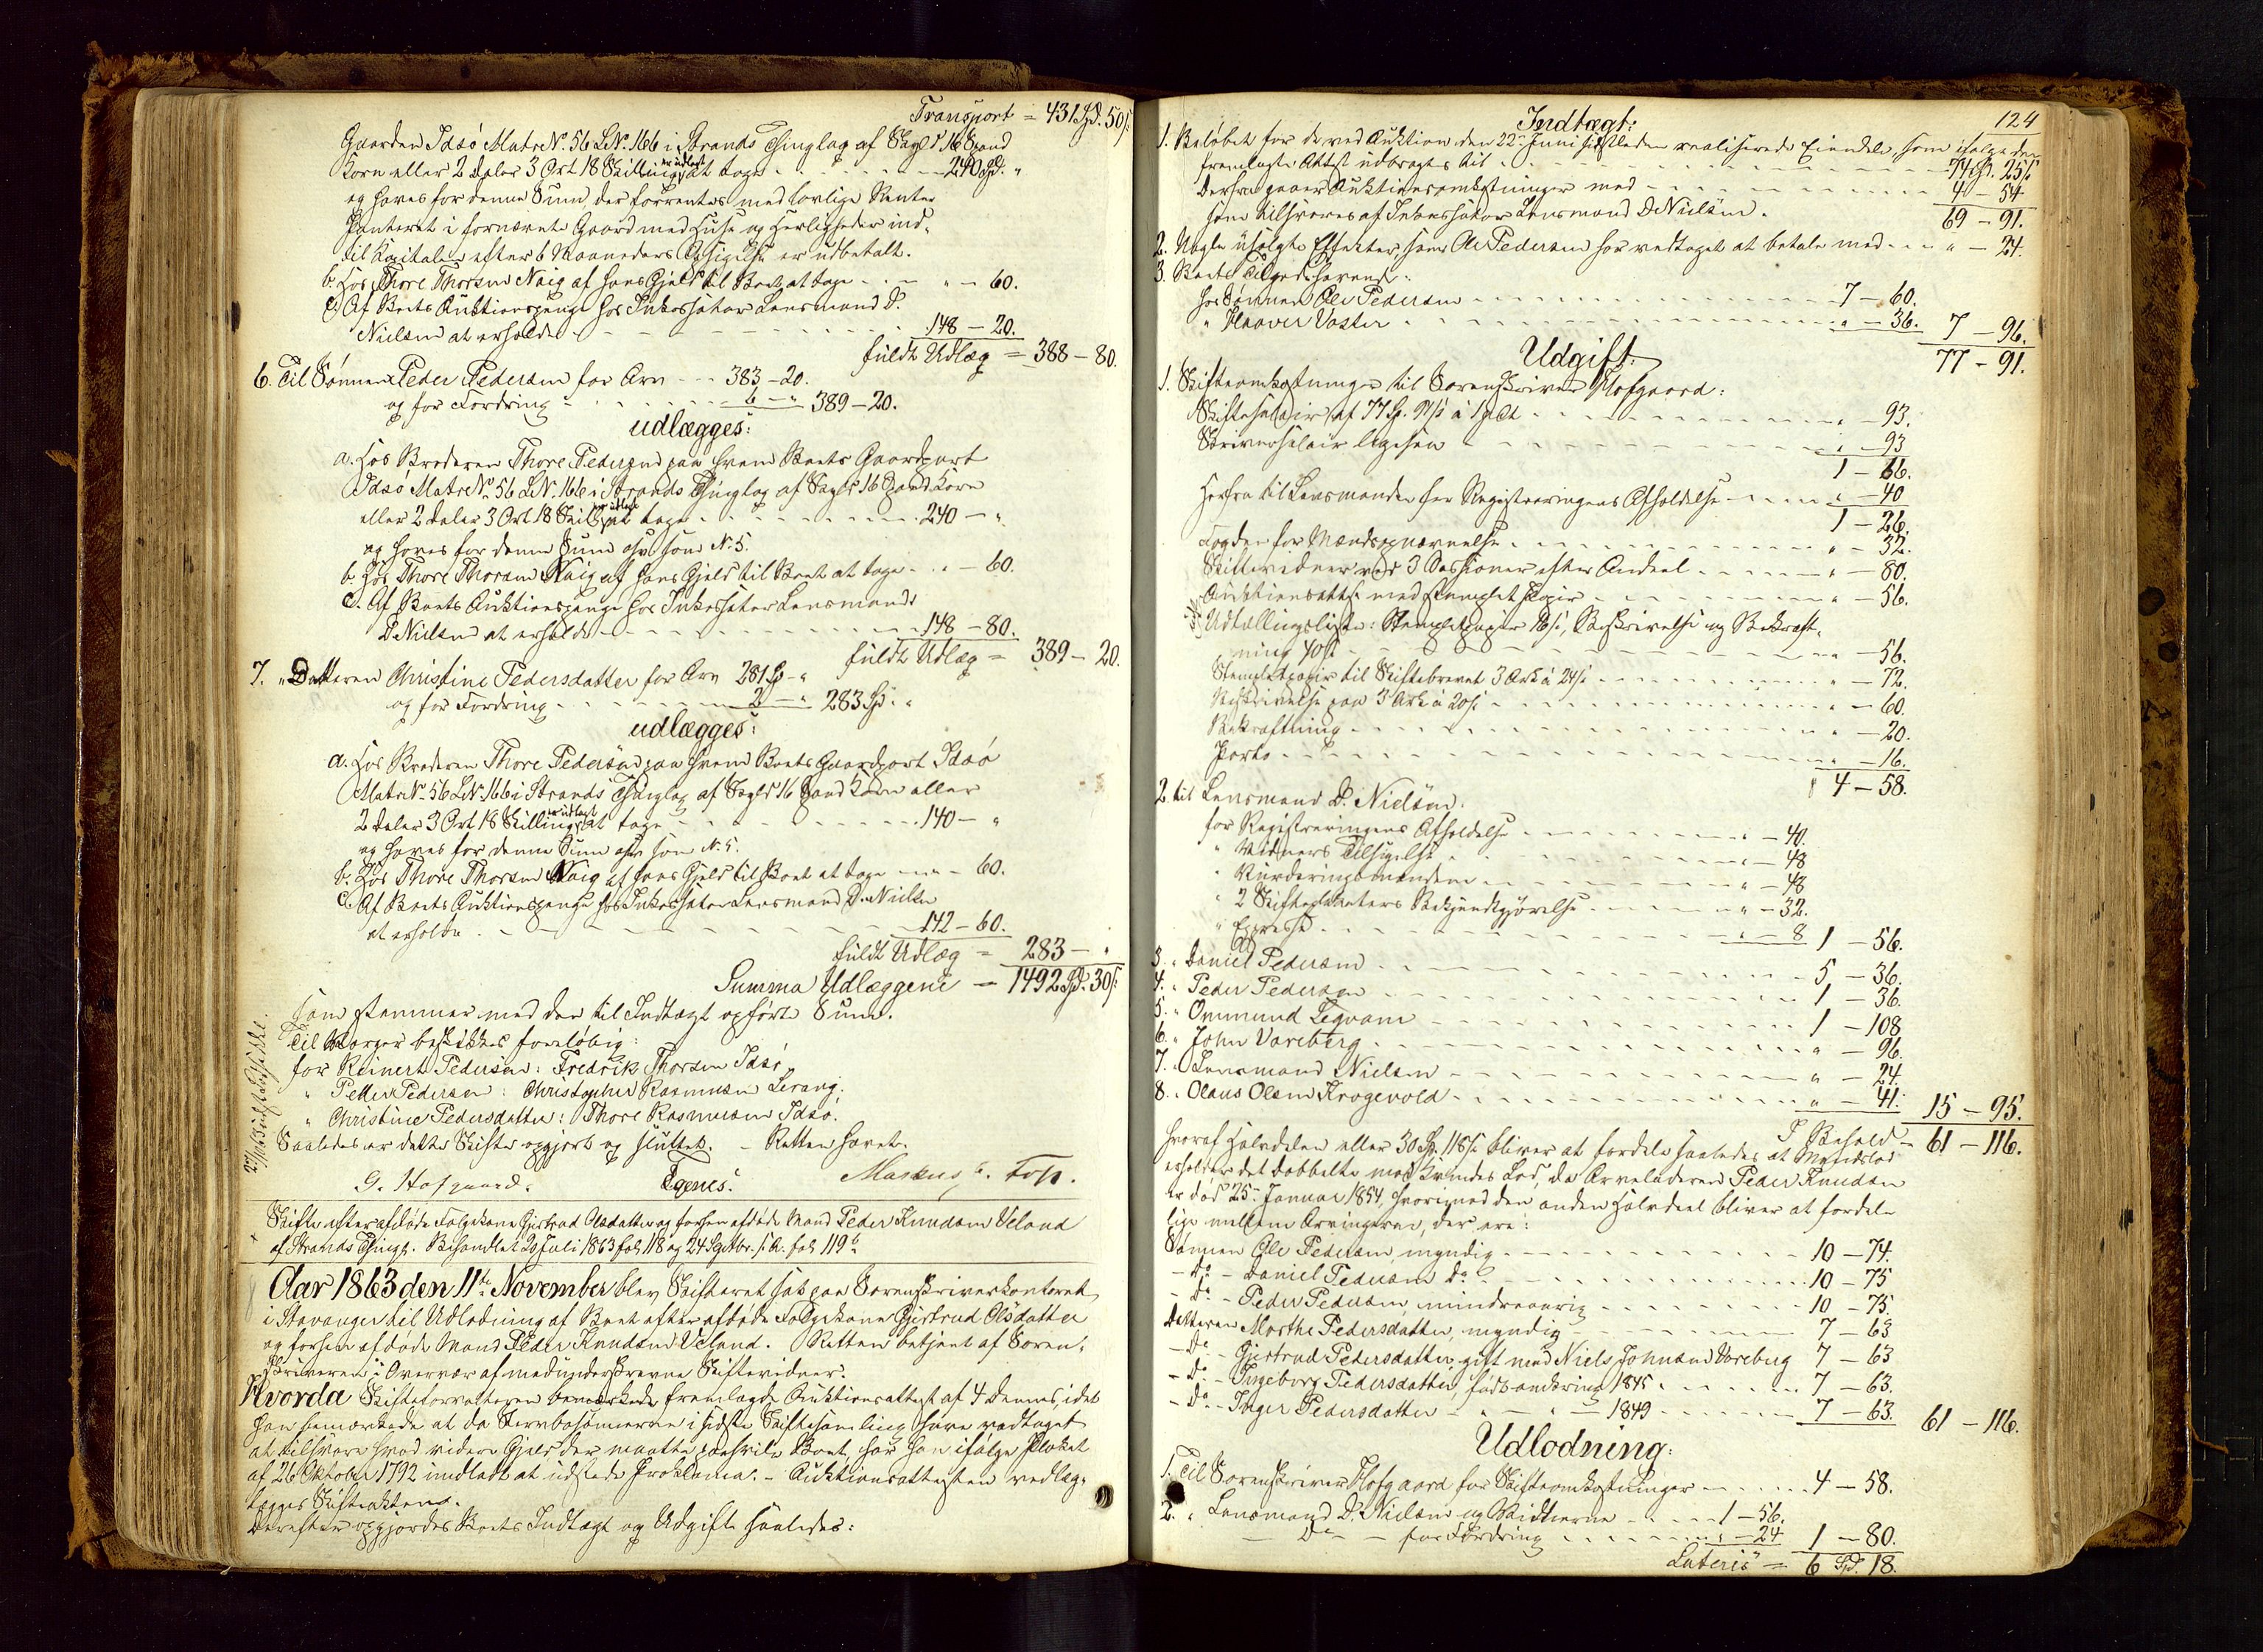 Transport = 431 Spd. 50 s:
Gaarden Idsø Matr No. 56 L.No. 166 i Strands Thinglag af Skyld 16 Spand
Korn eller 2 daler 3 Ort 18 Skilling er udlagt at tage - - - 240 Spd. "
og haves for denne Sum, der forrentes med lovlige Renter
Panteret i fornævnte Gaard med Huse og Herligheder ind-
til Kapitalen efter 6 Maaneders Opsigelse er udbetalt.
b. Hos Thore Thorsen Naig af hans Gjeld til Boet at tage - - " - 60.
c) Af Boets Auktionspenge hos Inkassator Lensmand D.
Nielsen at erholde - - - 148 - 20.
fuldt Udlæg = 388 - 80.
6. Til Sønnen Peder Pedersen for Arv - - 383 - 20.
og for Fordring - - - 6 - " 389 - 20.
udlægges:
a. Hos Broderen Thore Pedersen paa hvem Boets Gaardpart
Idsø Matr No. 56 L.No. 166 i Strands Thinglag af Skyld 16 Spand Korn
eller 2 daler 3 Ort 18 Skill er udlagt at tage - - - 240 - "
og haves for denne Sum osv. som No. 5.
b. Hos Thore Thorsen Naig af hans Gjeld til Boet at tage - - - 60.
c. Af Boets Auktionspenge hos Inkassator Lensmand
D. Nielsen at erholde - - - 148 - 80.
fuldt Udlæg = 389 - 20.
7. " Datteren Christine Pedersdatter for Arv 281 Sp - "
og for Fordring - - - 2 - " 283 Sp: "
udlægges:
a. Hos Broderen Thore Pedersen paa hvem Boets Gaardpart Idsø
Matr No. 56 L.No. 166 i Strands Thinglag af Skyld 16 Spand Korn eller
2 daler 3 Ort 18 Skilling er udlagt at tage - - - 140 - "
og haves for denne Sum osv. som No. 5.
b. Hos Thore Thorsen Naig af hans Gjeld til Boet at tage - - - 60.
c. Af Boets Auktionspenge hos Inkassator Lensmand D. Nielsen
at erholde - - - 142 - 60.
fuldt Udlæg = 283 - "
Summa Udlæggene = 1492 Spd. 30 s:
som stemmer med den til Indtægt opførte Sum.
Til Værger beskikkes foreløbig:
for Reinert Pedersen: Fredrik Thorsen Idsø
" Petter Pedersen: Christopher Rasmusen Lerang.
" Christine Pedersdatter: Thore Rasmusen Idsø.
Saaledes er dette Skifte opgjort og sluttet. - Retten hævet.
G. Hofgaard. Egenes. Markus
Skifte efter afdøde Folgekone Gjertrud Olsdatter og forhen afdøde Mand Peder Knudsen Veland
af Strands Thingl. Behandlet 20 Juli 1863 fol 118 og 24 Septbr. s. A. fol 119 b
Aar 1863 den 11te November blev Skifteret sat paa Sorenskriverkontoret
i Stavanger til Udlodning af Boet efter afdøde Folgekone Gjertrud Olsdatter
og forhen afdøde Mand Peder Knudsen Veland. Retten betjent af Soren-
skriveren i Overvær af medunderskrevne Skiftevidner.
Hvorda Skifteforvalteren bemærkede fremlagde Auktionsattest af 4 dennes, idet
han bemærkede at da Stervbosønnerne i sidste Skiftesamling have vedtaget
at tilsvare hvad videre Gjeld der maatte paahvile Boet, har han ifølge Plakat
af 26 Oktober 1792 undladt at udstede Proklama. - Auktionsattesten vedlæg-
lægges Skifteakten.
Derefter opgjordes Boets Indtægt og Udgift saaledes:
124
Indtægt:
1. Beløbet for de ved Auktion den 22de Juni sidstleden realiserede Eiendele, som ifølge den
fremlagte Attest udbragtes til - - - 74 Sp. 25 s
Derfra gaaer Auktionsomkostninger med - - - 4 - 54
som tilsvares af Inkassator Lensmand D. Nielsen. 69 - 91.
2. Nogle usolgte Effekter, som Ole Pedersen har vedtaget at betale med - - " - 24.
3. Boets Tilgodehavende:
hos Sønnen Ole Pedersen - - - 7 - 60.
" Haaver Vaster - - - " - 36. 7 - 96.
77 - 91.
Udgift:
1. Skifteomkostninger til Sorenskriver Hofgaard:
Skiftesalair af 77 Sp. 91 s à 1 pCt - - - " - 93.
Skriversalair ligesaa - - - " - 93
1 - 66.
Herfra til Lensmanden for Registreringens Afholdelse - - - " - 40
1 - 26.
Fogden for Mændsopnævnelse - - - " - 32.
Skiftevidner ved 3 Sessioner efter Andeel - - - " - 80.
Auktionsattest med stemplet Papir - - - " - 56.
Udtællingsliste: Stempletpapir 16 s, Beskrivelse og Bekræft-
ning 40 s - - - " - 56.
Stempletpapir til Skiftebrevet 3 Ark à 24 s - - - " - 72.
Beskrivelse paa 3 Ark à 20 s - - - " - 60.
Bekræftning - - - " - 20.
Porto - - - " - 16.
4 - 58.
2. til Lensmand D. Nielsen:
for Registreringens Afholdelse - - - " - 40.
" Vidners Tilsigelse - - - " - 48
" Vurderingsmændene - - - " - 48
" 2 Skifteplakaters Bekjendtgjørelse - - - " - 32.
" Expresse - - - " - 8 1 - 56.
3. " Daniel Pedersen - - - 5 - 36.
4. " Peder Pedersen - - - 1 - 36.
5. " Ommund Legvam - - - 1 - 108
6. " John Vareberg - - - " - 96.
7. " Lensmand Nielsen - - - " - 24.
8. " Olaus Olsen Krogevold - - - " - 41. 15 - 95.
I Behold - 61 - 116.
hvoraf Halvdelen eller 30 Sp. 118 s bliver at fordele saaledes at Mandslod
erholder det dobbelte mod Kvindes Lod, da Arveladeren Peder Knudsen
er død 25de Januar 1854, hvorimod den anden Halvdeel bliver at fordele
lige mellem Arvingerne, der ere:
Sønnen Ole Pedersen, myndig - - - 10 - 74.
- Do - Daniel Pedersen Do - - - 10 - 75
- Do - Peder Pedersen, mindreaarig - - - 10 - 75.
Datteren Marthe Pedersdatter, myndig - - - 7 - 63
- Do - Gjertrud Pedersdatter, gift med Niels Johnsen Vareberg 7 - 63
- Do - Ingeborg Pedersdatter, født omkring 1845 - - - 7 - 63.
- Do - Inger Pedersdatter - " - " - 1849 - - - 7 - 63. 61 - 116.
Udlodning:
1. Til Sorenskriver Hofgaard for Skifteomkostninger - - - 4 - 58.
2. " Lensmand D. Nielsen og Vidnerne - - - 1 - 56.
- Do - for Fordring - - - " - 24 1 - 80.
Lateris = 6 Spd. 18.